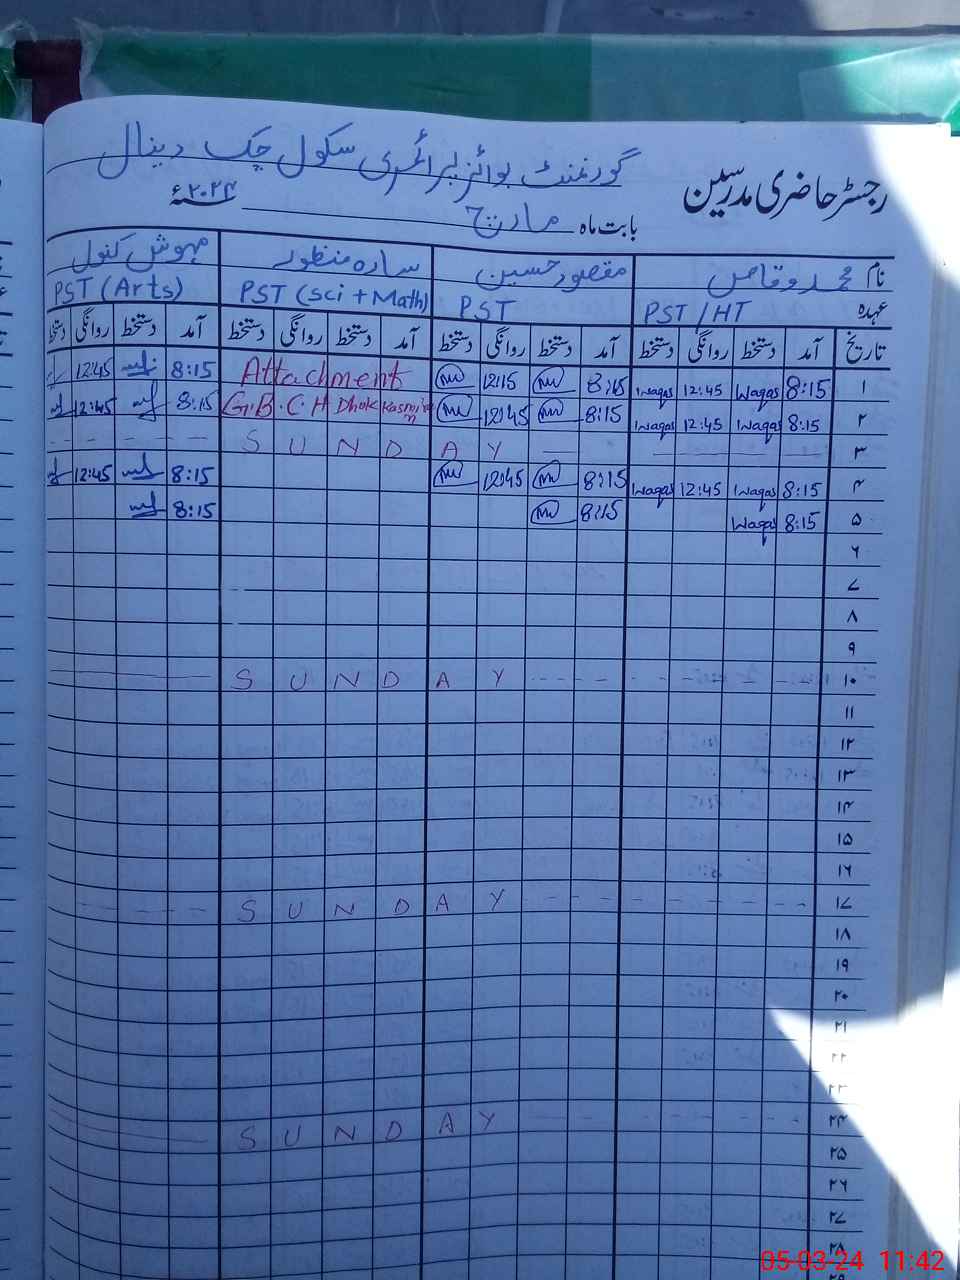 گورنمنٹ بوائز پرائمری سکول چک دینال
رجسٹر حاضری مدرسین
بابت ماہ مارچ ۲۰۲۴ء
نام محمد وقاص مقصود حسین سارہ منظور مہوش کنول
عہدہ PST/HT PST PST (Sci + Math) PST (Arts)
تاریخ آمد دستخط روانگی دستخط آمد دستخط روانگی دستخط آمد دستخط روانگی دستخط آمد دستخط روانگی دستخط
۱ 8:15 Waqas 12:45 Waqas 8:15 12:15 Attachment 8:15 12:45
۲ 8:15 Waqas 12:45 Waqas 8:15 12:45 G.B.C.H Dhok 8:15 12:45
۳ SUNDAY
۴ 8:15 Waqas 12:45 Waqas 8:15 12:45 8:15 12:45
۵ 8:15 Waqas 8:15 8:15
۶
۷
۸
۹
۱۰ SUNDAY
۱۱
۱۲
۱۳
۱۴
۱۵
۱۶
۱۷ SUNDAY
۱۸
۱۹
۲۰
۲۱
۲۲
۲۳
۲۴ SUNDAY
۲۵
۲۶
۲۷
۲۸
05-03-24 11:42